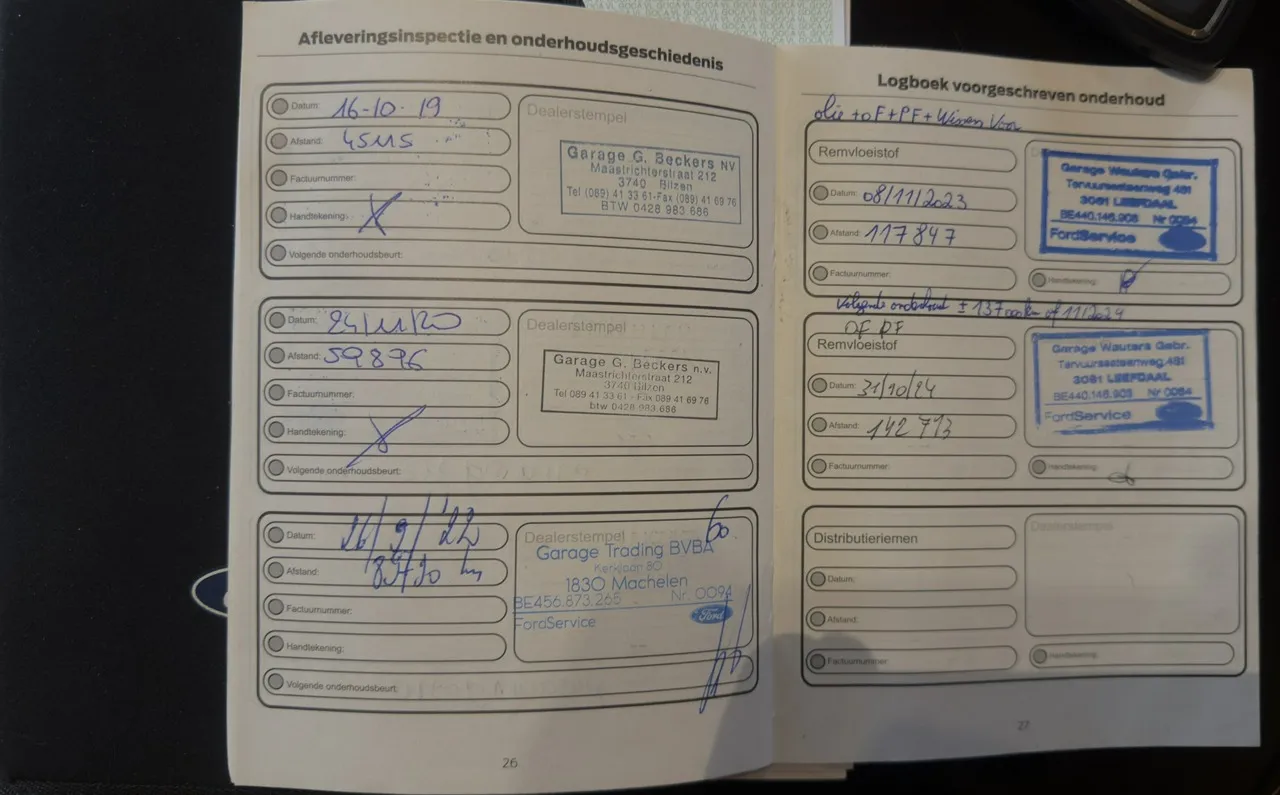 Afleveringsinspectie en onderhoudsgeschiedenis
Datum: 16-10-19
Afstand: 45115
Factuurnummer:
Handtekening:
Volgende onderhoudsbeurt:
Dealerstempel
Garage G. Beckers NV
Maastrichterstraat 212
3740 Bilzen
Tel (089) 41 33 61-Fax (089) 41 69 76
BTW 0428 983 686
Datum: 24/11/20
Afstand: 59896
Factuurnummer:
Handtekening:
Volgende onderhoudsbeurt:
Dealerstempel
Garage G. Beckers n.v.
Maastrichterstraat 212
3740 Bilzen
Tel 089 41 33 61 - Fax 089 41 69 76
btw 0428 983 686
Datum: 26/9/'22
Afstand: km
Factuurnummer:
Handtekening:
Volgende onderhoudsbeurt:
Dealerstempel
Garage Trading BVBA
Kerklaan 80
1830 Machelen
BE456.873.265 Nr. 0094
FordService
Ford
26
Logboek voorgeschreven onderhoud
olie + oF + PF + Wissen Voor
Remvloeistof
Datum: 08/11/2023
Afstand: 117847
Factuurnummer:
Garage Wauters Gebr.
Tervuursesteenweg 481
3061 LEEFDAAL
BE440.146.903 Nr 0084
FordService
Handtekening:
Volgende onderhoud ± 137 km of 11/2024
OF PF
Remvloeistof
Datum: 31/10/24
Afstand: 142713
Factuurnummer:
Garage Wauters Gebr.
Tervuursesteenweg.481
3061 LEEFDAAL
BE440.146.903 Nr 0084
FordService
Handtekening:
Distributieriemen
Datum:
Afstand:
Factuurnummer
Dealerstempel
Handtekening:
27